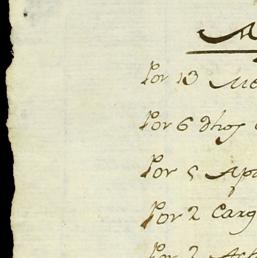 M
Por 13 Me
Por 6 dhos
Por 5 Apa
Por 2 Carg
Por 2